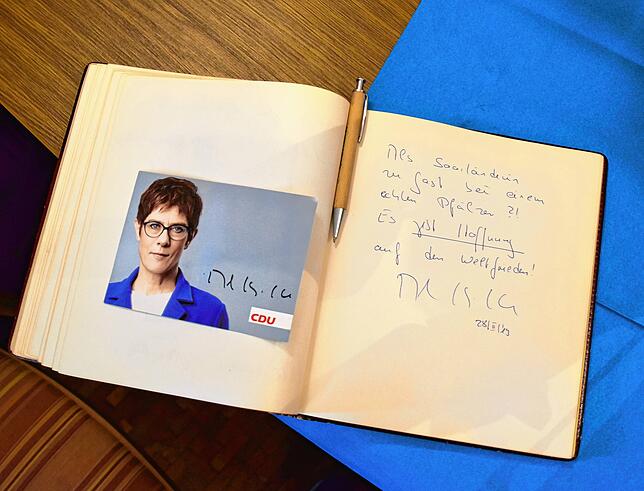 CDU
Als Saarländerin
zu Gast bei einem
echten Pfälzer ?!
Es gibt Hoffnung
auf den Weltfrieden!